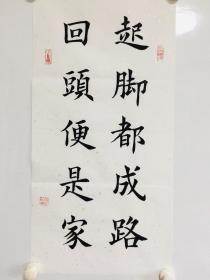 起脚都成路
回頭便是家